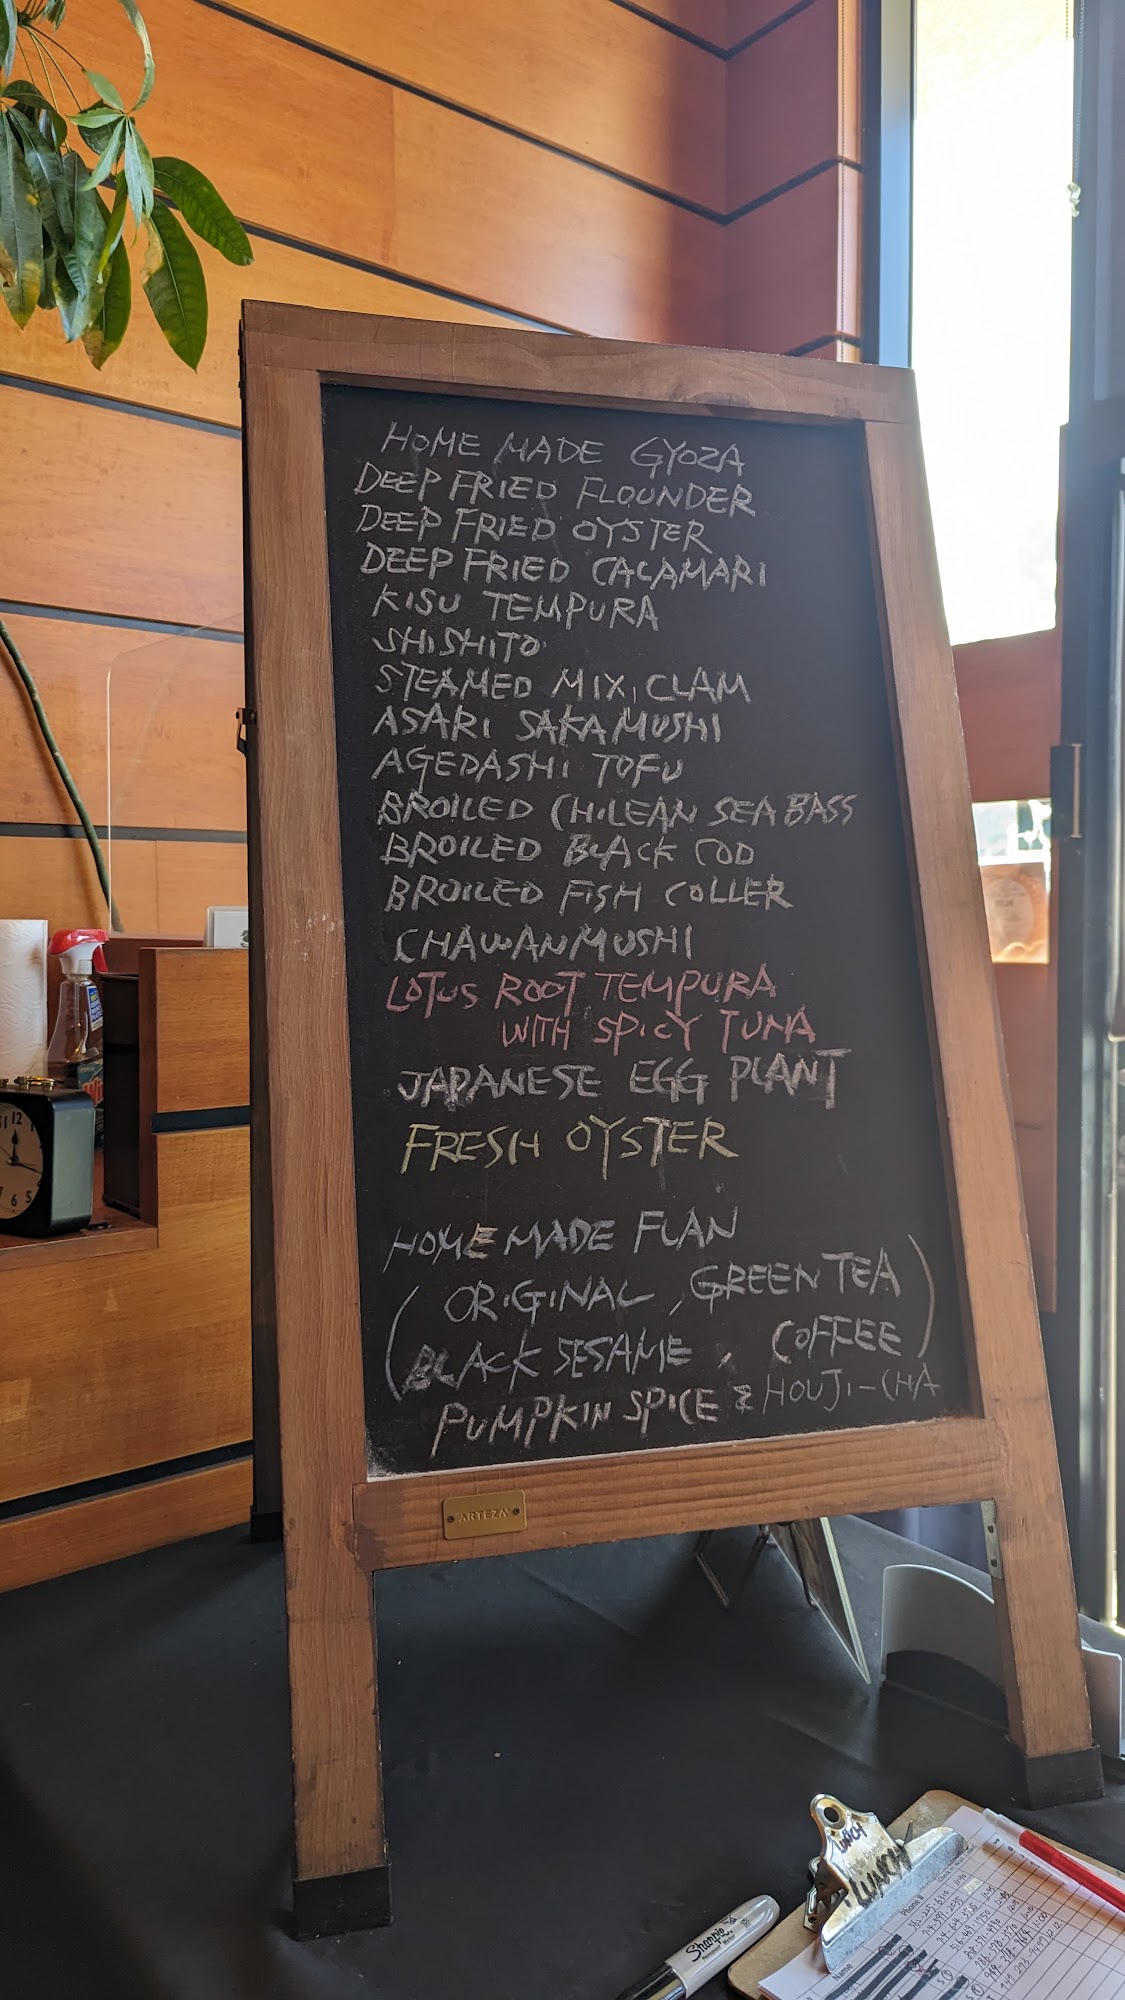 HOME MADE GYOZA
DEEP FRIED FLOUNDER
DEEP FRIED OYSTER
DEEP FRIED CALAMARI
KISU TEMPURA
SHISHITO
STEAMED MIX, CLAM
ASARI SAKAMUSHI
AGEDASHI TOFU
BROILED CHILEAN SEA BASS
BROILED BLACK COD
BROILED FISH COLLER
CHAWANMUSHI
LOTUS ROOT TEMPURA
WITH SPICY TUNA
JAPANESE EGG PLANT
FRESH OYSTER
HOME MADE FLAN
( ORIGINAL, GREEN TEA )
BLACK SESAME, COFFEE
PUMPKIN SPICE & HOUJI-CHA
ARTEZA
11 12
7 6 5
LUNCH
LUNCH
Phone #
Name
Sharpie